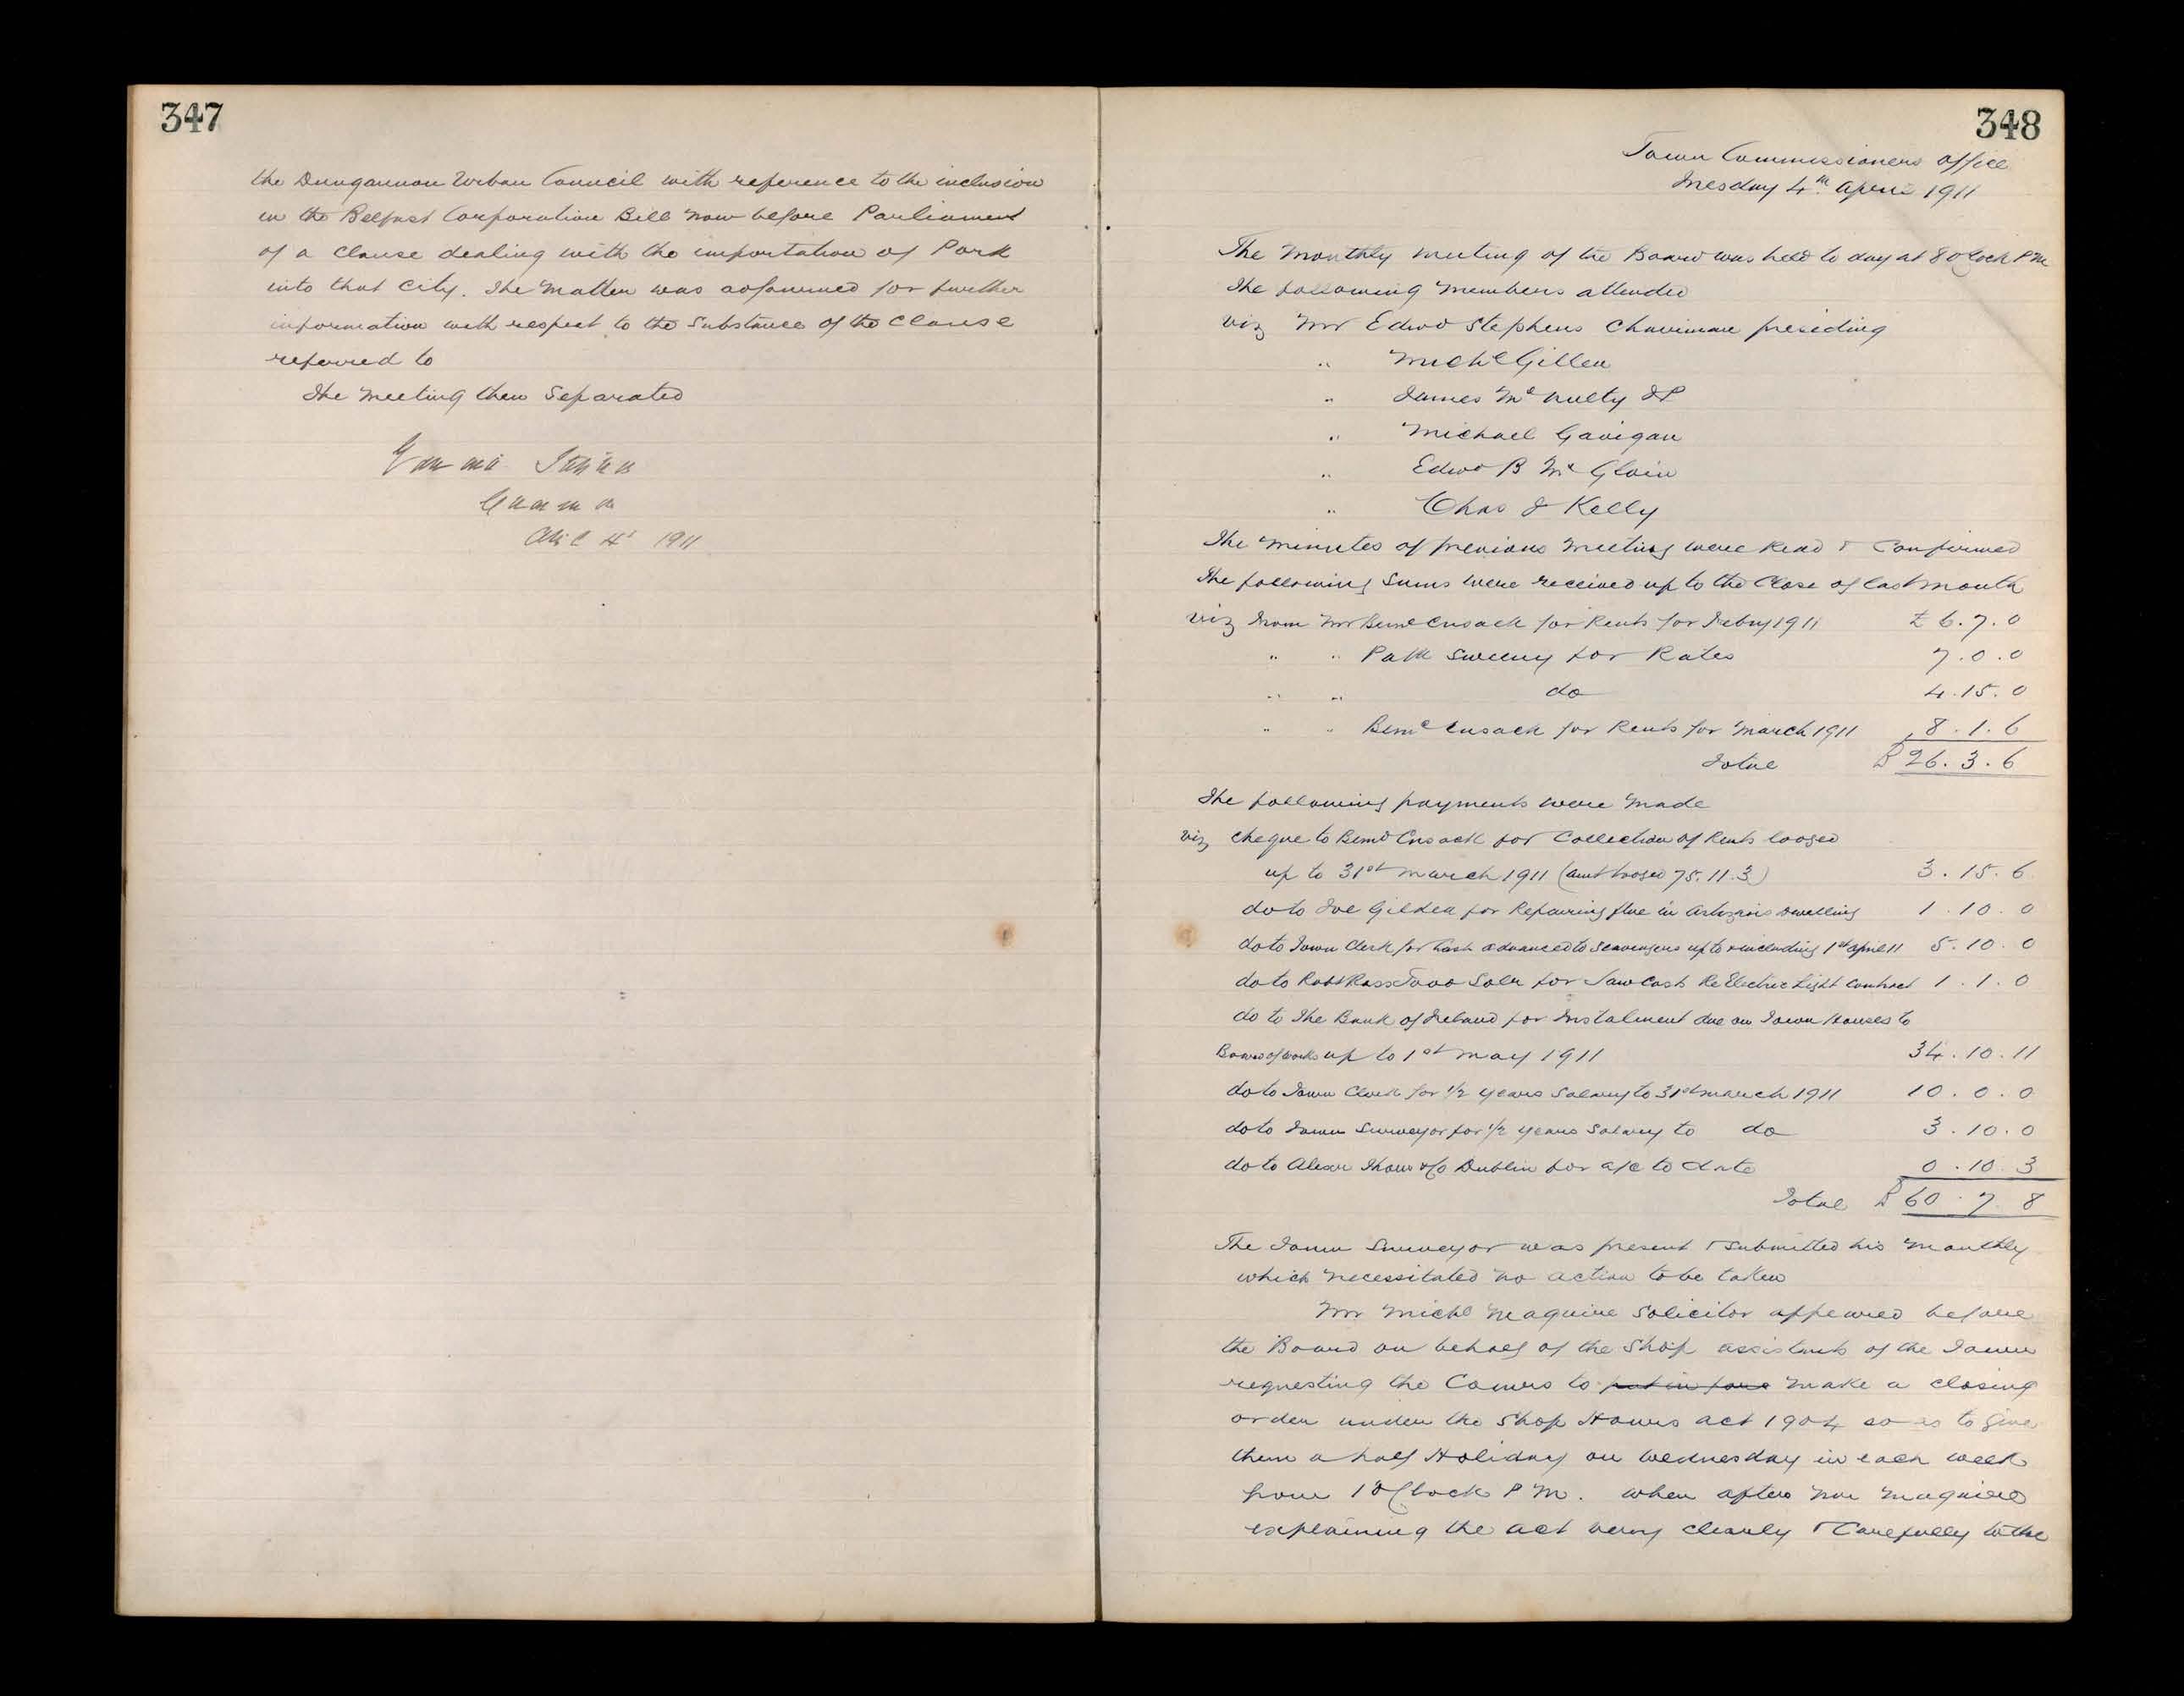 347
the Dungannon Urban Council with reference to the inclusion
in the Belfast Corporation Bill now before Parliament
of a clause dealing with the importation of Pork
into that City. The matter was adjourned for further
information with respect to the Substance of the Clause
referred to
The Meeting then Separated
Chairman
April 4th 1911
348
Town Commissioners office
Tuesday 4th April 1911
The Monthly meeting of the Board was held to day at 8 oClock PM
The following Members attended
viz Mr Edwd Stephens Chairman presiding
" Michl Gillen
" James McNulty JP
" Michael Gavigan
" Edwd B McGloin
" Chas J Kelly
The Minutes of previous Meeting were Read & Confirmed
The following Sums were received up to the Close of last month
viz From Mr Bernd Cusack for Rents for Febry 1911 £6.7.0
" " Patk Sweeny for Rates 7.0.0
" " do 4.15.0
" " Bernd Cusack for Rents for March 1911 8.1.6
Total £26.3.6
The following payments were made
viz Cheque to Bernd Cusack for Collection of Rents lodged
up to 31st March 1911 (amt lodged 75.11.3) 3.15.6
do to Joe Gilden for Repairing flue in Artizans dwelling 1.10.0
do to Town Clerk for Cash advanced to Scavengers up to & including 1st April 11 5.10.0
do to Robt Ross Todd Solr for Law Costs Re Electric Light Contract 1.1.0
do to The Bank of Ireland for Instalment due on Town Houses to
Board of Works up to 1st May 1911 34.10.11
do to Town Clerk for 1/2 years Salary to 31st March 1911 10.0.0
do to Town Surveyor for 1/2 years Salary to do 3.10.0
do to Alexr Thom & Co Dublin for a/c to date 0.10.3
Total £60.7.8
The Town Surveyor was present & submitted his Monthly
which necessitated no action to be taken
Mr Michl Maguire Solicitor appeared before
the Board on behalf of the Shop assistants of the Town
requesting the Comrs to put in force make a closing
order under the Shop Hours act 1904 so as to give
them a half Holiday on Wednesday in each week
from 1 oClock PM. when after Mr Maguire
explaining the act very clearly & Carefully to the